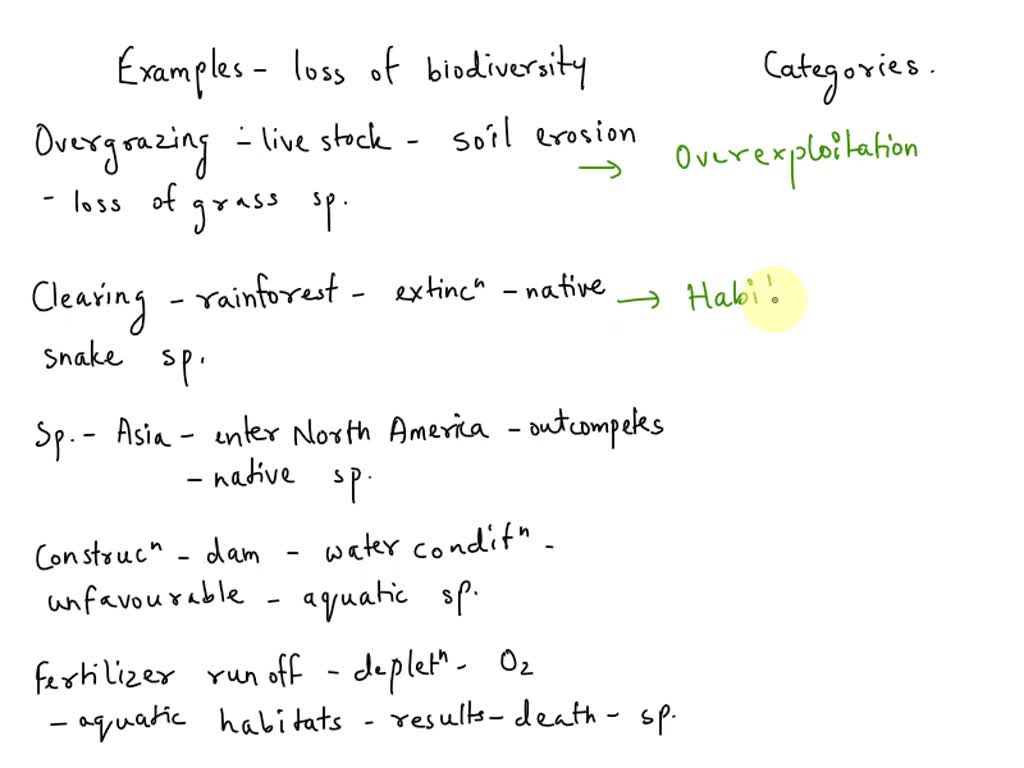 Examples - loss of biodiversity Categories.
Overgrazing - live stock - soil erosion → Overexploitation
- loss of grass sp.
Clearing - rainforest - extincⁿ - native → Habi
snake sp.
Sp. - Asia - enter North America - outcompetes
- native sp.
Construcⁿ - dam - water conditⁿ -
unfavourable - aquatic sp.
Fertilizer run off - depletⁿ - O₂
- aquatic habitats - results - death - sp.